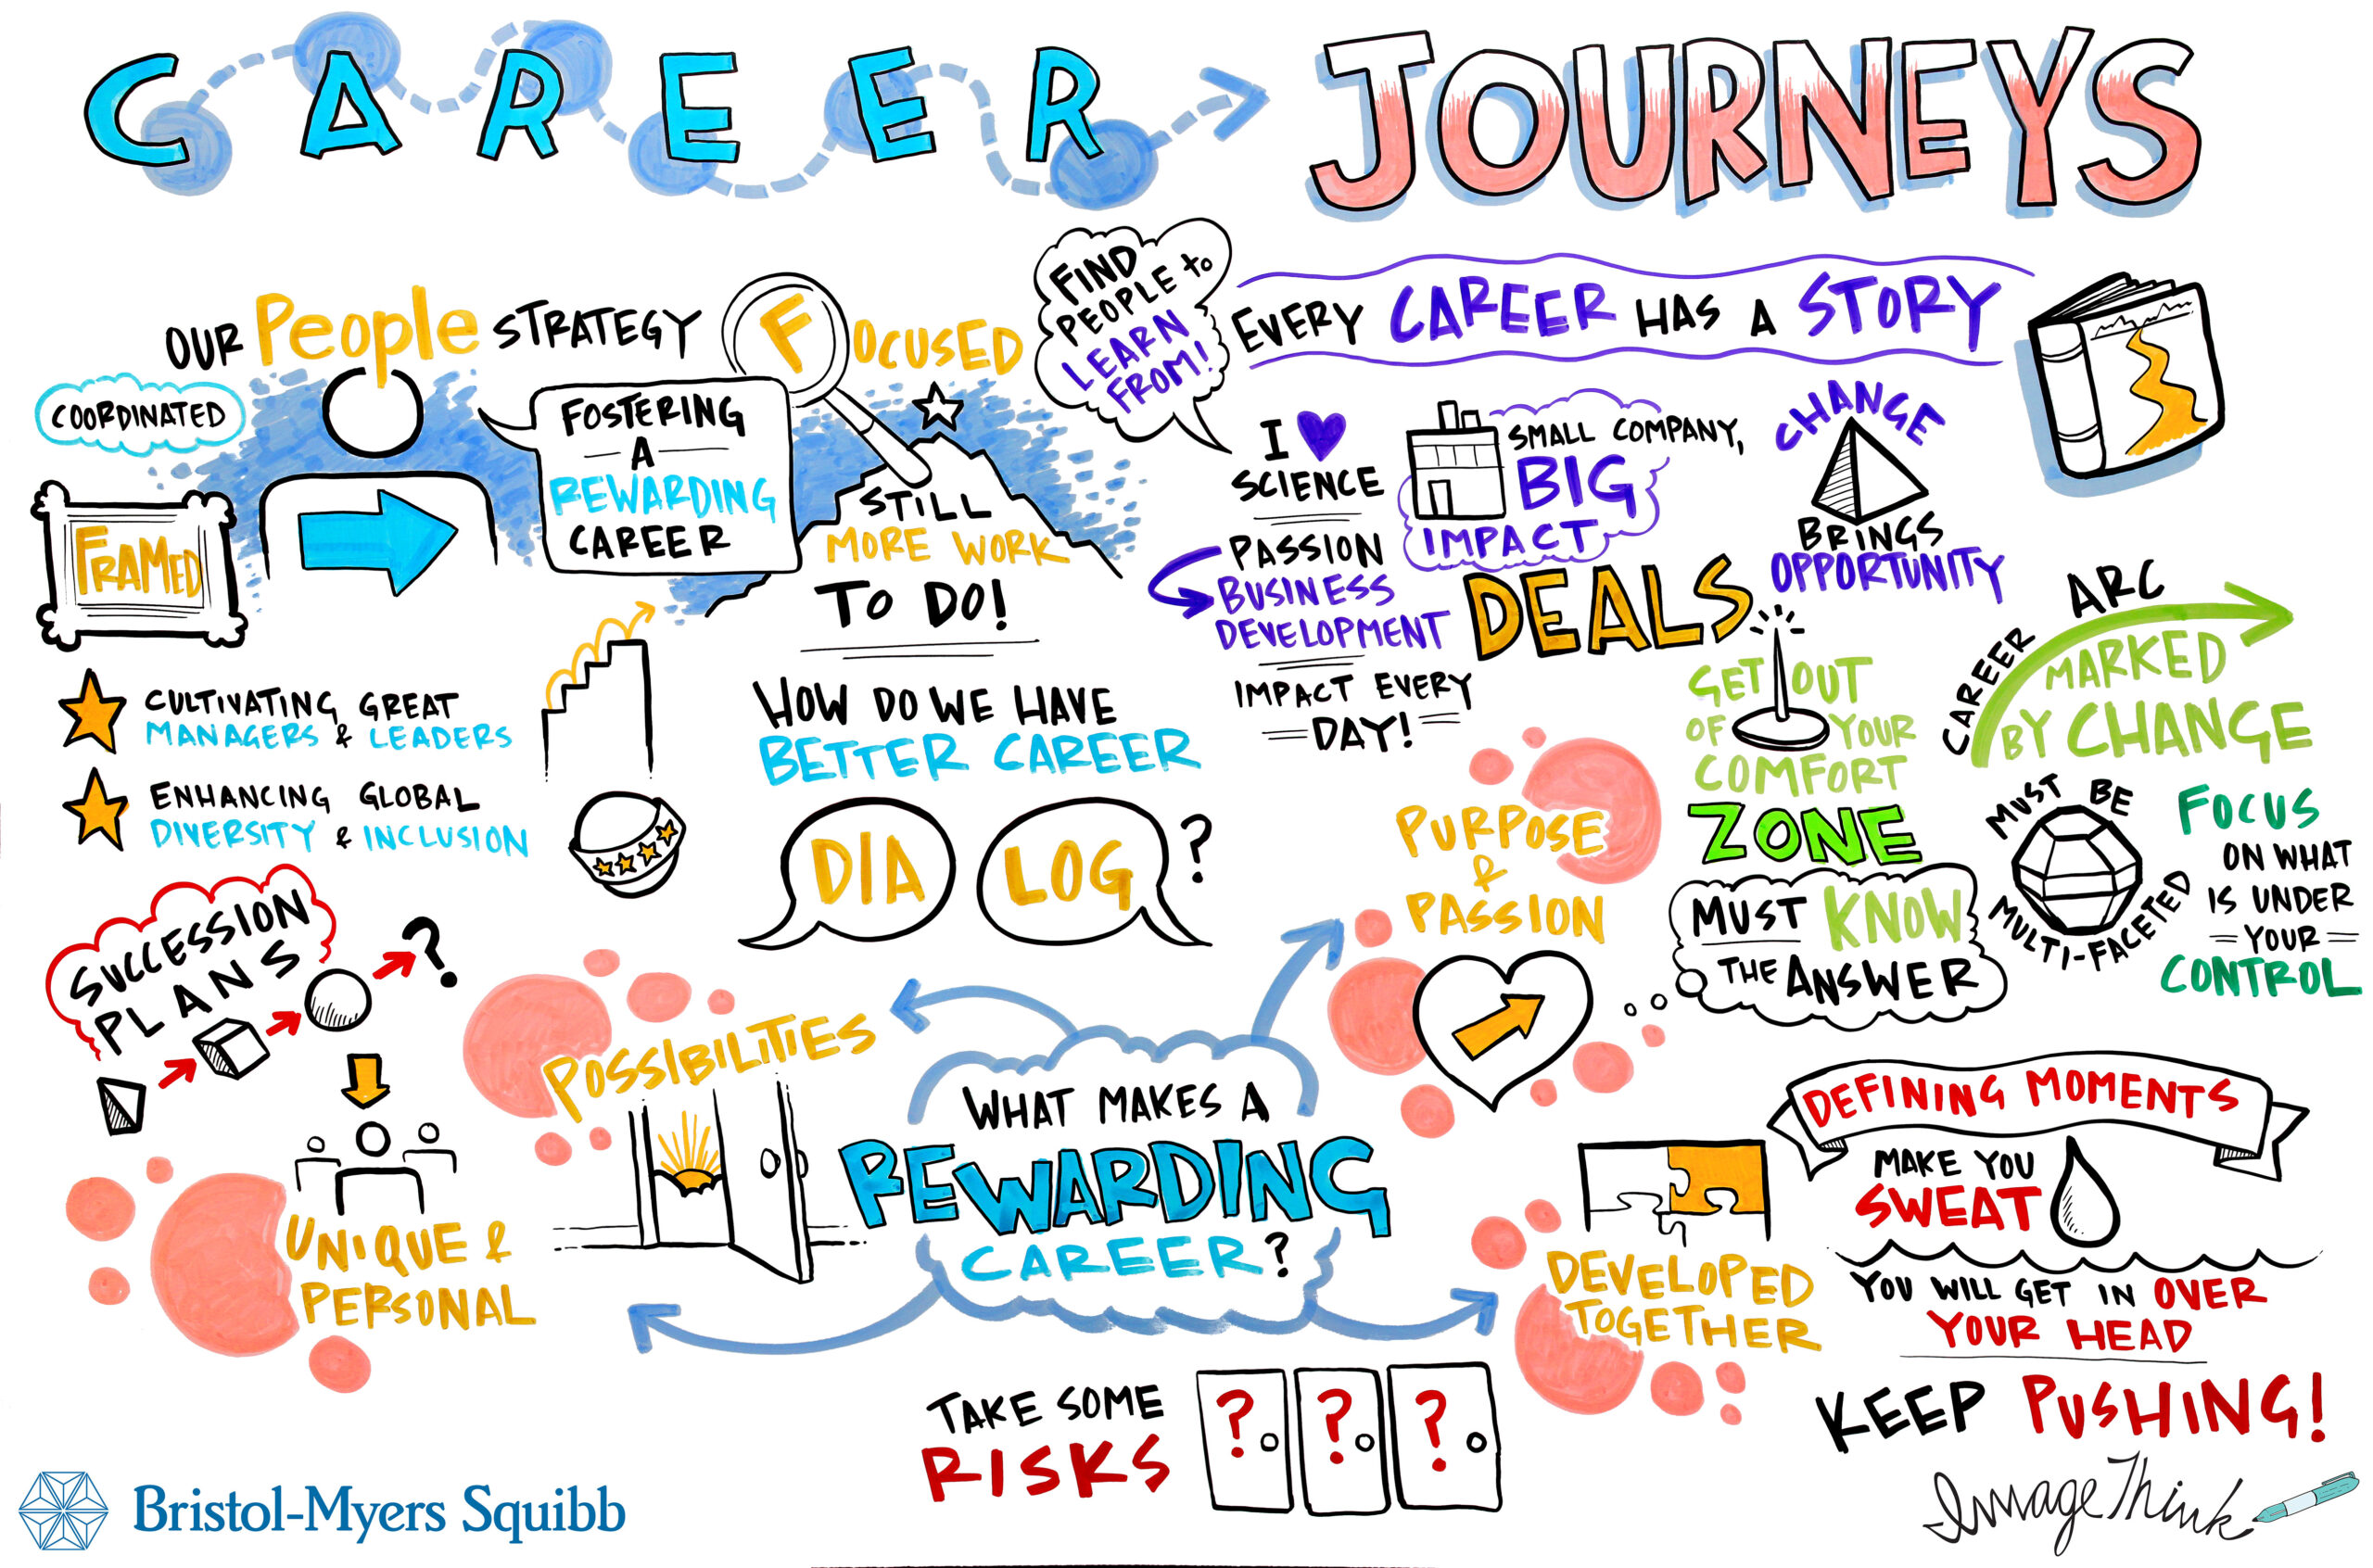 CAREER
JOURNEYS
OUR People STRATEGY
FOCUSED
COORDINATED
FRAMED
FOSTERING
A
REWARDING
CAREER
STILL
MORE WORK
TO DO!
CULTIVATING GREAT
MANAGERS & LEADERS
ENHANCING GLOBAL
DIVERSITY & INCLUSION
HOW DO WE HAVE
BETTER CAREER
DIA LOG ?
SUCCESSION
PLANS
?
FIND
PEOPLE to
LEARN
FROM!
EVERY CAREER HAS A STORY
I
SCIENCE
PASSION
BUSINESS
DEVELOPMENT
IMPACT EVERY
DAY!
SMALL COMPANY,
BIG
IMPACT
DEALS
CHANGE
BRINGS
OPPORTUNITY
GET OUT
OF YOUR
COMFORT
ZONE
CAREER ARC
MARKED
BY CHANGE
MUST BE
MULTI-FACETED
FOCUS
ON WHAT
IS UNDER
YOUR
CONTROL
MUST KNOW
THE ANSWER
WHAT MAKES A
REWARDING
CAREER?
POSSIBILITIES
PURPOSE
&
PASSION
UNIQUE &
PERSONAL
DEVELOPED
TOGETHER
DEFINING MOMENTS
MAKE YOU
SWEAT
YOU WILL GET IN OVER
YOUR HEAD
KEEP PUSHING!
TAKE SOME
RISKS
? ? ?
Bristol-Myers Squibb
ImageThink